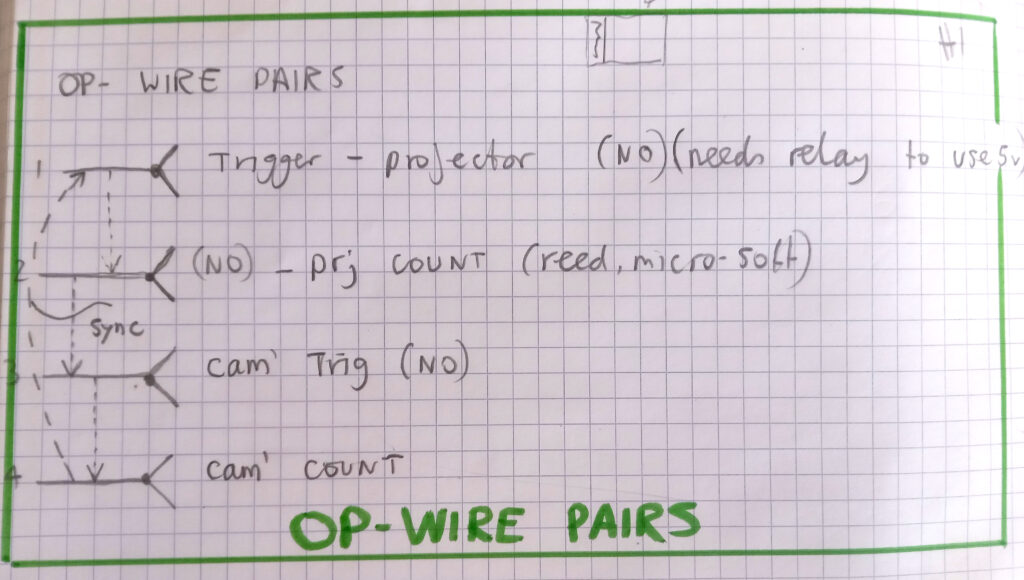 #1
OP- WIRE PAIRS
1 Trigger - projector (NO) (needs relay to use 5v)
2 (NO) - prj COUNT (reed, micro-soft)
sync
3 cam' Trig (NO)
4 cam' COUNT
OP-WIRE PAIRS